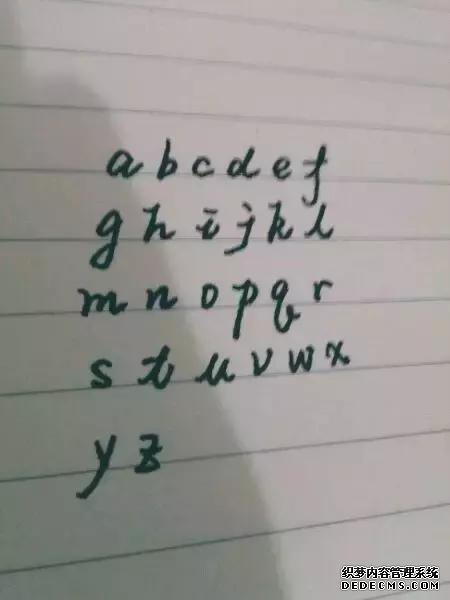 a b c d e f
g h i j k l
m n o p q r
s t u v w x
y z
织梦内容管理系统
DEDECMS.COM